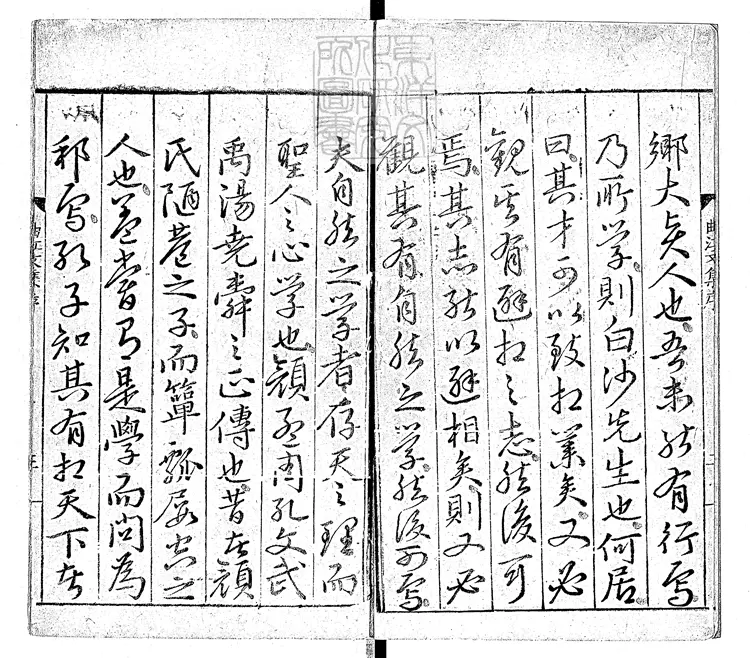 鄉大賢人也吾未能有行焉
乃所學則白沙先生也何居
曰其才可以致相業矣又必
觀其有避相之志然後可
焉其志能以避相矣則又必
觀其有自然之學然後可焉
曲江文集序
二
夫自然之學者存天之理而
聖人之心學也顏孟周孔文武
禹湯堯舜之正傳也昔者顏
氏陋巷之子而簞瓢屢空之
人也蓋嘗以是學而問為
邦焉孔子知其有相天下者
曲江文集序
三